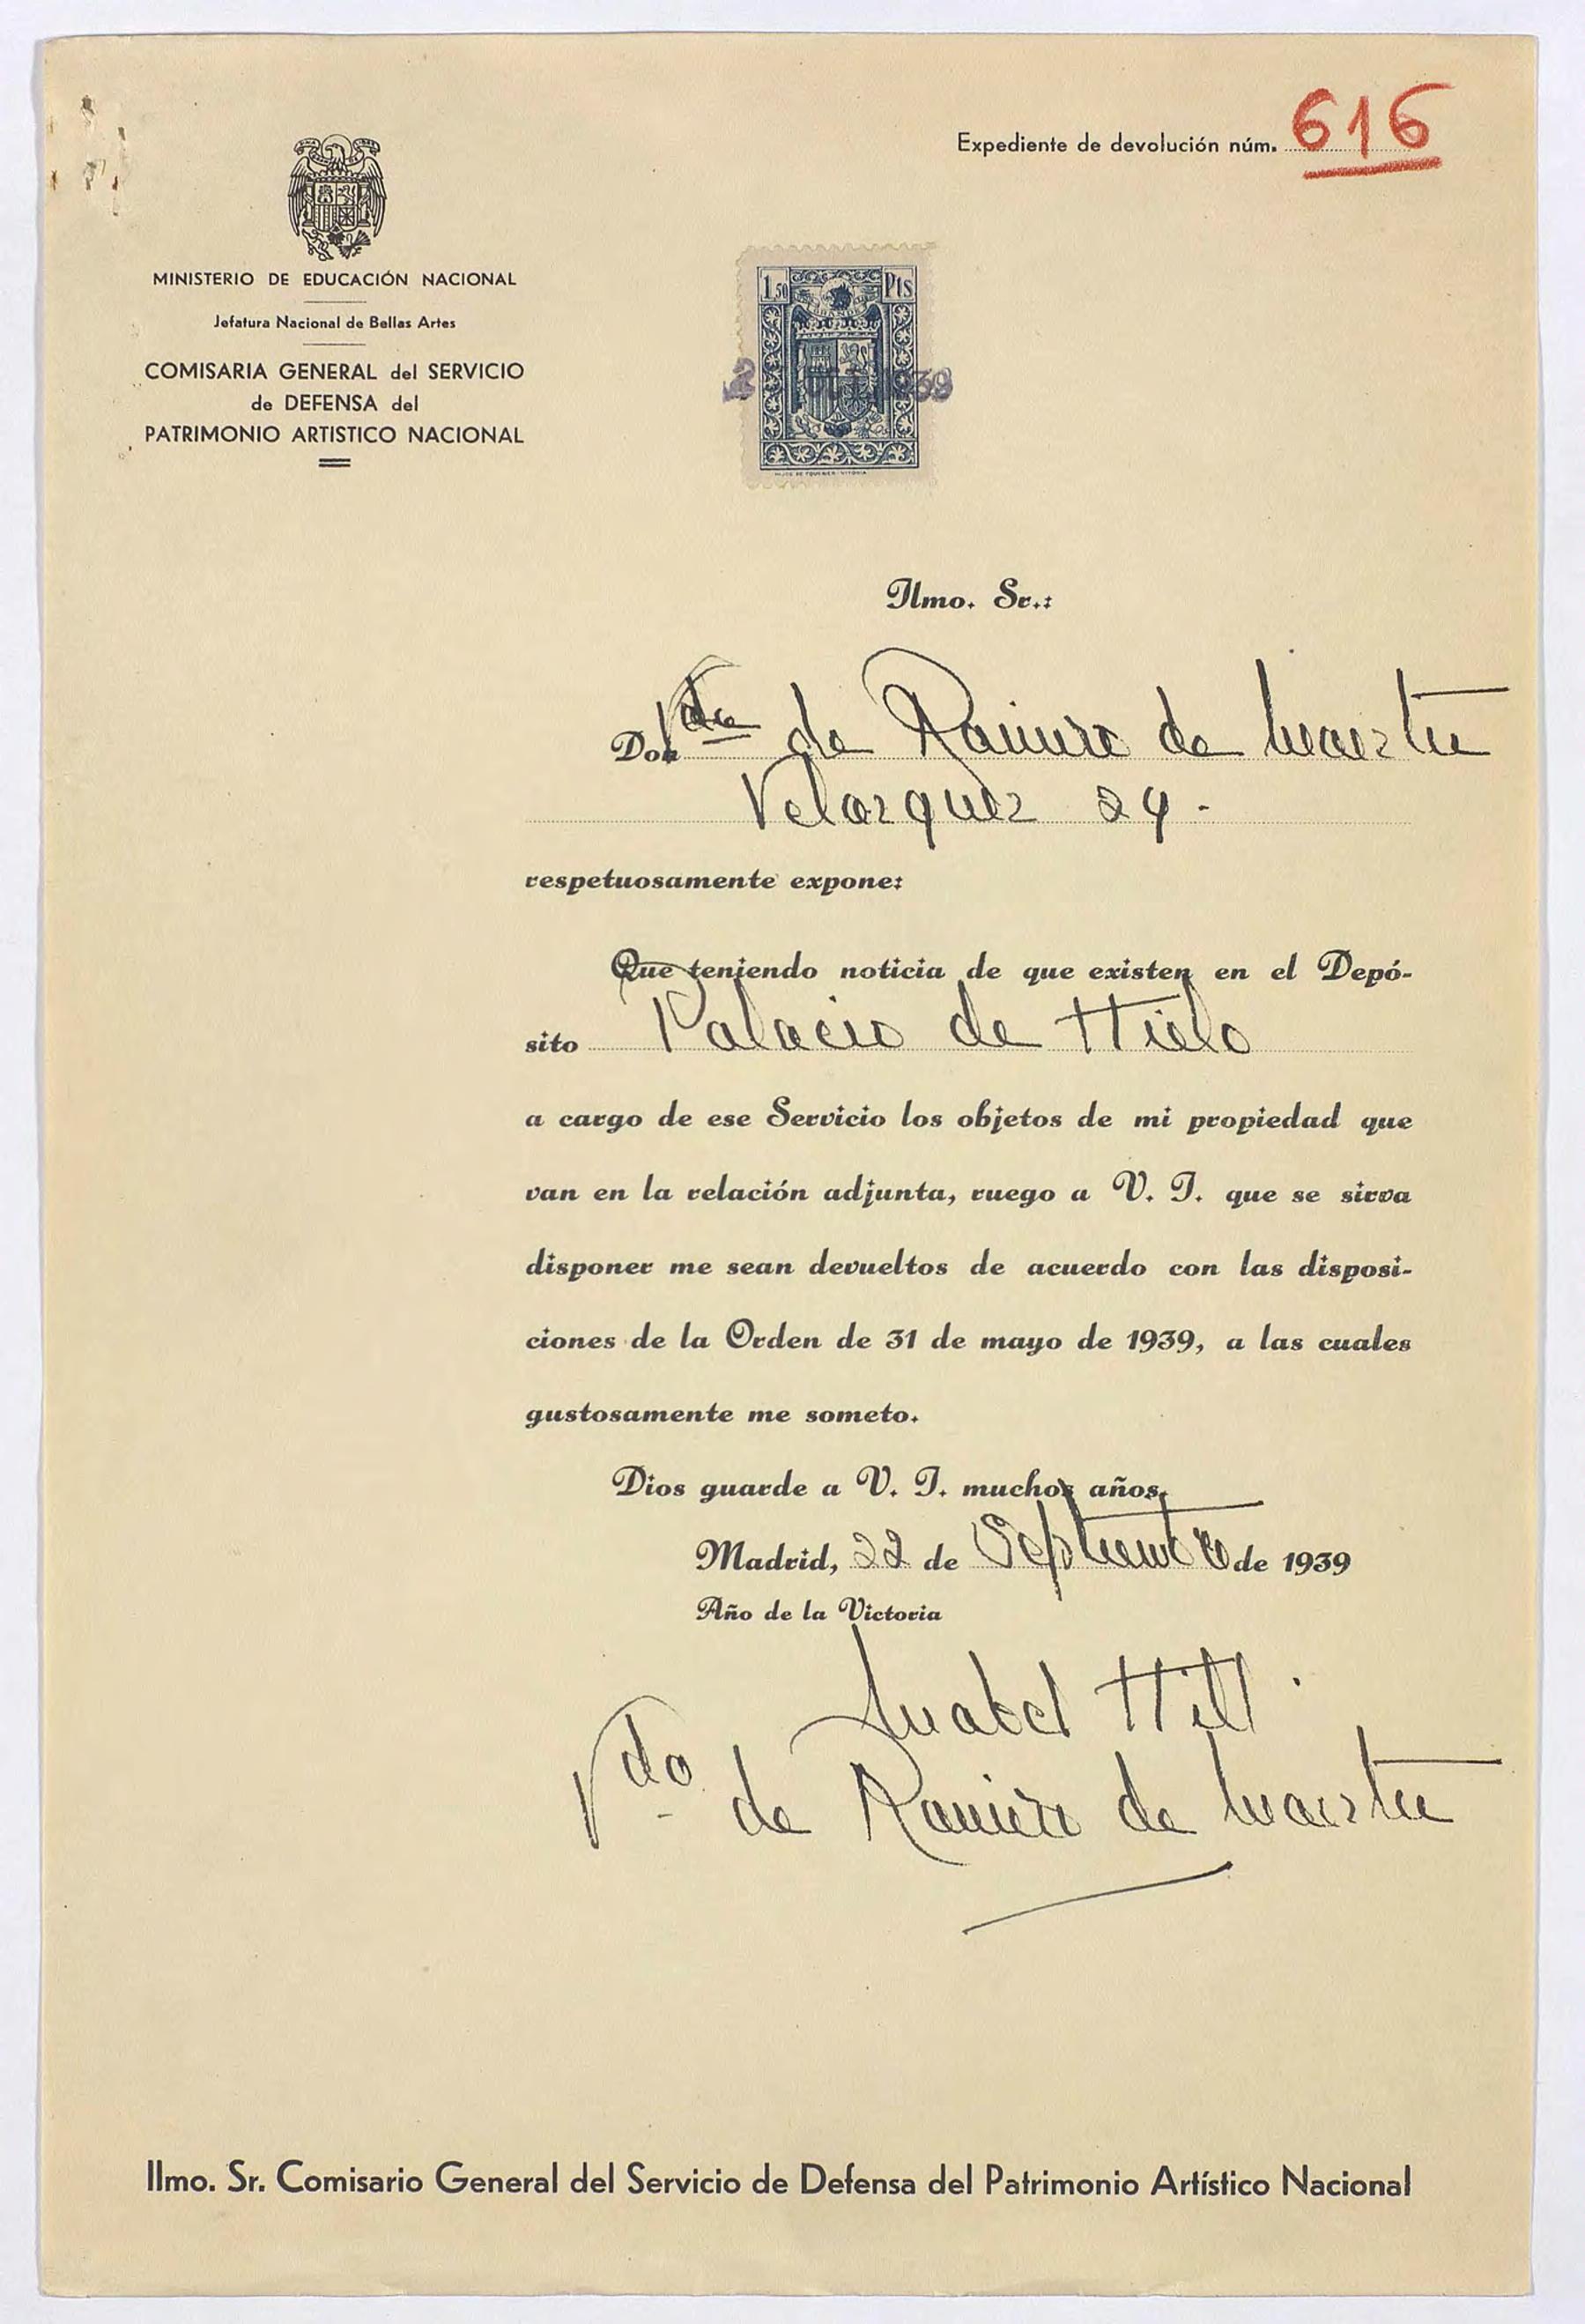 Expediente de devolución núm. 616
MINISTERIO DE EDUCACIÓN NACIONAL
Jefatura Nacional de Bellas Artes
COMISARIA GENERAL del SERVICIO
de DEFENSA del
PATRIMONIO ARTISTICO NACIONAL
1,50 Pts
2 1939
HIJOS DE FOURNIER-VITORIA
Ilmo. Sr.:
Don Vda de Ramiro de Maeztu
Velazquez 24 -
respetuosamente expone:
Que teniendo noticia de que existen en el Depó-
sito Palacio de Hielo
a cargo de ese Servicio los objetos de mi propiedad que
van en la relación adjunta, ruego a V. I. que se sirva
disponer me sean devueltos de acuerdo con las disposi-
ciones de la Orden de 31 de mayo de 1939, a las cuales
gustosamente me someto.
Dios guarde a V. I. muchos años.
Madrid, 22 de Septiembre de 1939
Año de la Victoria
Mabel Hill
Vda de Ramiro de Maeztu
Ilmo. Sr. Comisario General del Servicio de Defensa del Patrimonio Artístico Nacional